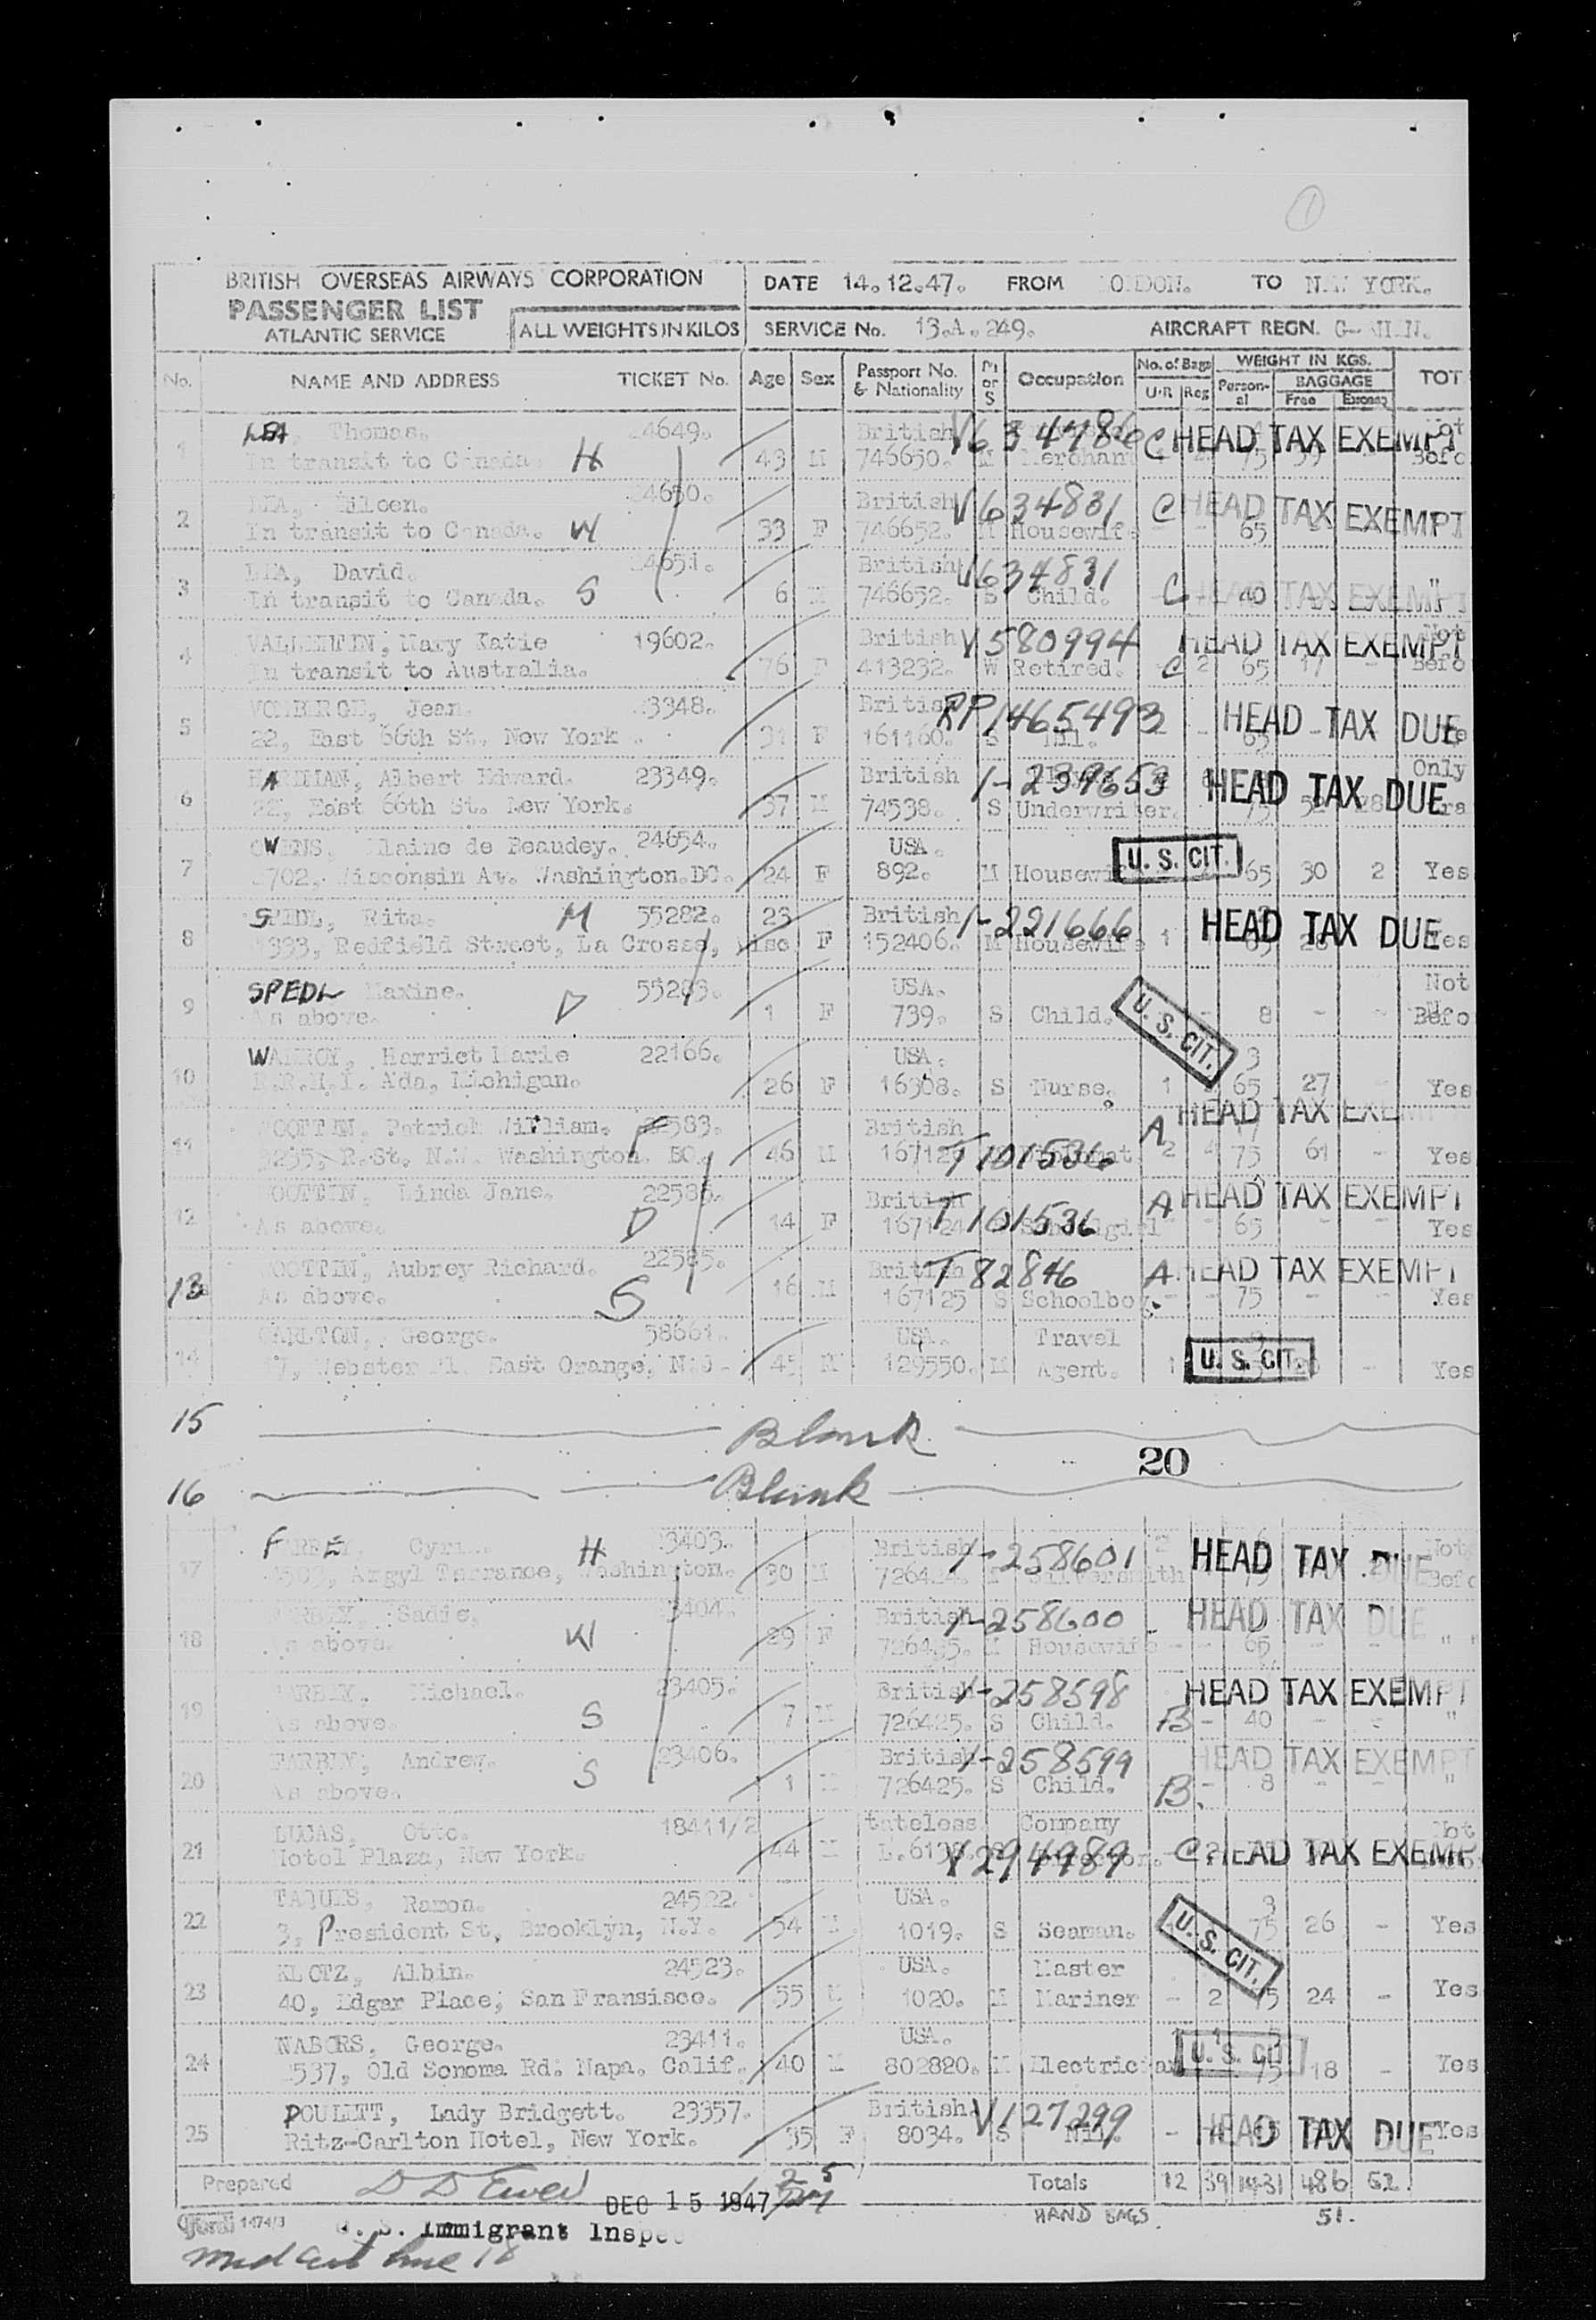 1
BRITISH OVERSEAS AIRWAYS CORPORATION
PASSENGER LIST
ATLANTIC SERVICE
ALL WEIGHTS IN KILOS
DATE 14.12.47. FROM LONDON. TO NEW YORK.
SERVICE No. 13.A.249. AIRCRAFT REGN.
No. NAME AND ADDRESS TICKET No. Age Sex Passport No. & Nationality M or S Occupation No. of Bags U·R Reg WEIGHT IN KGS. Personal BAGGAGE Free Excess TOT
1 LEA, Thomas. 4649. British V634786 C HEAD TAX EXEMPT Not
In transit to Canada. H 43 M 746650. M Merchant 75 Befo
2 LEA, Eileen. 4650. British V634831 C HEAD TAX EXEMPT
In transit to Canada. W 33 F 746652. M Housewife - - 65
3 LEA, David. 4651. British V634831 HEAD TAX EXEMPT
In transit to Canada. S 6 M 746652. S Child. C 40 "
4 Mary Katie 19602. British V580994 HEAD TAX EXEMPT Not
In transit to Australia. 76 F 413232. W Retired. C 2 65 17 - Befo
5 Jean. 3348. British RP1465493 HEAD TAX DUE
22, East 66th St. New York 31 F 161160. S Nil. - - 65 -
6 Albert Edward. 23349. British HEAD TAX DUE Only
22, East 66th St. New York. 37 M 74538. S Underwriter. 75
7 OWENS, Elaine de Beaudey. 24654. USA. U. S. CIT.
Wisconsin Av. Washington.DC. 24 F 892. M Housewife 65 30 2 Yes
8 SPEDL, Rita. M 55282. 23 British 1-221666 HEAD TAX DUE
Redfield Street, La Crosse, Wisc F 152406. M Housewife 1 65 Yes
9 SPEDL Maxine. 55283. USA. U. S. CIT. Not
As above. D 1 F 739. S Child. - 8 - - Befo
10 Harriet Marie 22166. USA. 3
Ada, Michigan. 26 F 16308. S Nurse. 1 65 27 Yes
11 WOOTTEN, Patrick William. 22583. British A HEAD TAX EXE
R.St. N.W. Washington. 46 M T101536 2 4 75 61 - Yes
12 WOOTTEN, Linda Jane. British A HEAD TAX EXEMPT
As above. D 14 F 167124 T101536 Schoolgirl - - 65 - - Yes
13 WOOTTEN, Aubrey Richard. 22585. British T82846 A HEAD TAX EXEMPT
As above. S 16 M 167125 S Schoolboy. - - 75 - - Yes
14 CARLTON, George. 58661. USA. Travel
Webster Pl. East Orange, N.J. 45 M 129550. M Agent. 1 U. S. CIT. - Yes
15 Blank
20
16 Blank
17 FARBEY, H 3403. British 1-258601 HEAD TAX DUE Not
Argyl Terrance, Washington. 30 M Silversmith Befo
18 FARBEY, Sadie. 3404. British 1-258600 HEAD TAX DUE
As above. W 29 F M Housewife - - 65 - - " "
19 FARBEY, Michael. 23405. British 1-258598 HEAD TAX EXEMPT
As above. S 7 M 726425. S Child. B - 40 - - "
20 FARBEY, Andrew. 23406. British 1-258599 HEAD TAX EXEMPT
As above. S 1 M 726425. S Child. B. - 8 - - "
21 LUCAS, Otto. 18411/2 Stateless. Company Not
Hotel Plaza, New York. 44 M V294989 C HEAD TAX EXEMP
22 Ramon. 24522. USA. 3
3, President St, Brooklyn, N.Y. 54 M. 1019. S Seaman. U. S. CIT. 75 26 - Yes
23 KLOTZ, Albin. 24523. USA. Master
40, Edgar Place, San Fransisco. 55 M 1020. M Mariner - 2 75 24 - Yes
24 NABORS, George. 23411. USA. U. S. CIT
Old Sonoma Rd. Napa. Calif. 40 M 802820. M Electrician 75 18 - Yes
25 POULETT, Lady Bridgett. 23357. British. V127299 HEAD TAX DUE
Ritz-Carlton Hotel, New York. 35 F 8034. S Nil. - Yes
Prepared Totals 12 39 1431 486 52.
DEC 15 1947
HAND BAGS. 51.
Form 1474/3 U. S. Immigrant Inspec